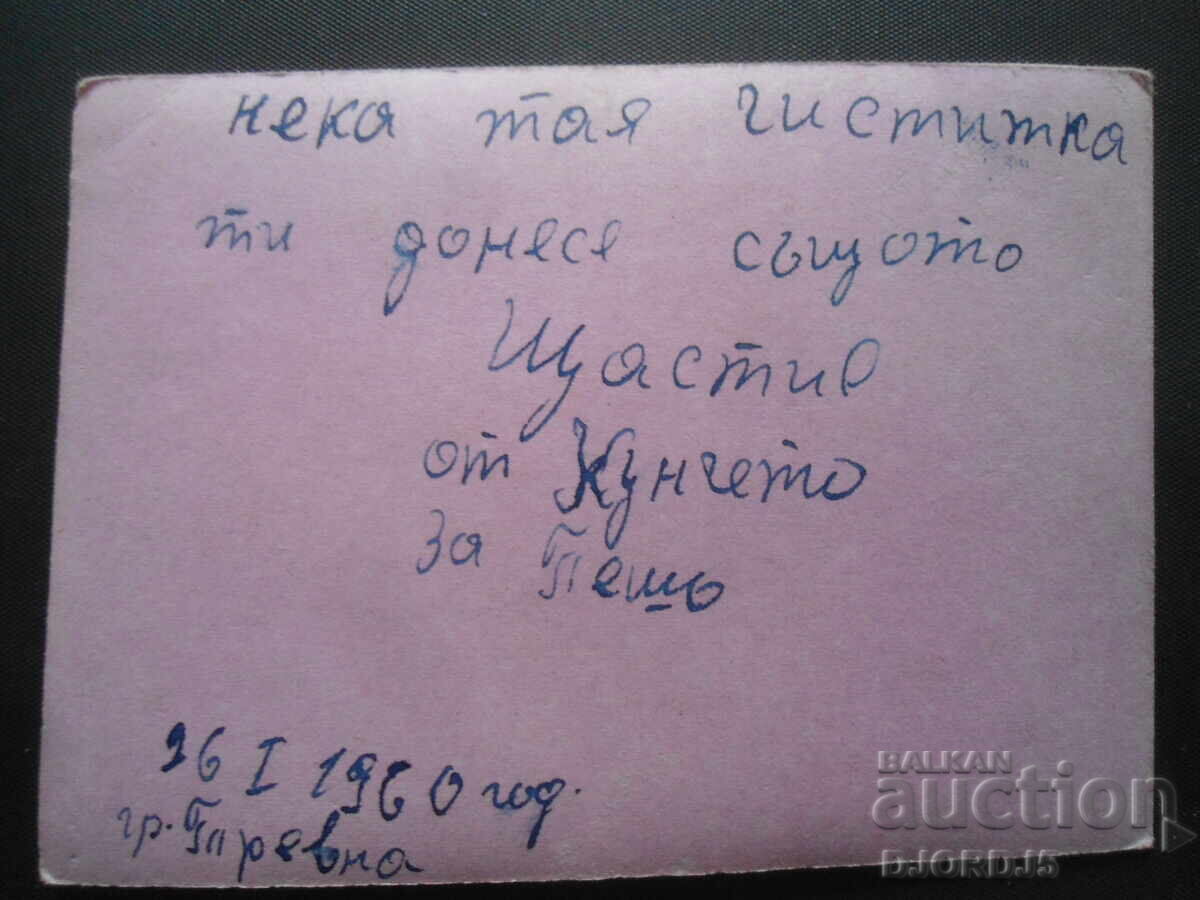 нека тая чиститка
ти донесе същото
Щастие
от Кунчето
за Пешо
26 I 1960 год.
гр. Тревна
BALKAN
auction
DJORDJ5